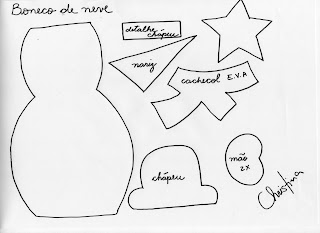 Boneco de neve
detalhe
chápeu
nariz
cachecol E.V.A
chápeu
mão
2x
Christina